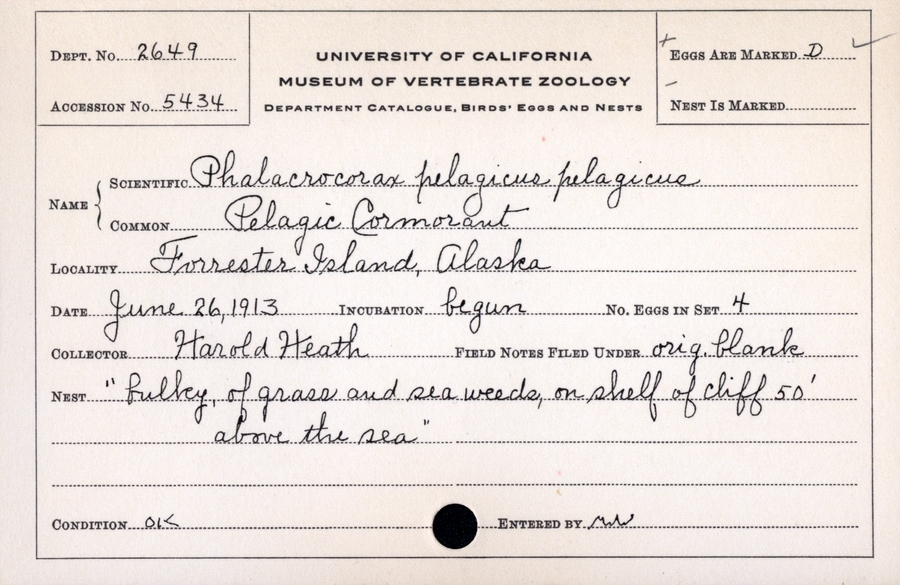 DEPT. No. 2649
ACCESSION No. 5434
UNIVERSITY OF CALIFORNIA
MUSEUM OF VERTEBRATE ZOOLOGY
DEPARTMENT CATALOGUE, BIRDS' EGGS AND NESTS
+ EGGS ARE MARKED D ✓
– NEST IS MARKED
NAME { SCIENTIFIC Phalacrocorax pelagicus pelagicus
COMMON Pelagic Cormorant
LOCALITY Forrester Island, Alaska
DATE June 26, 1913 INCUBATION begun No. EGGS IN SET 4
COLLECTOR Harold Heath FIELD NOTES FILED UNDER orig. blank
NEST "bulky, of grass and sea weeds, on shelf of cliff 50'
above the sea"
CONDITION OK ENTERED BY